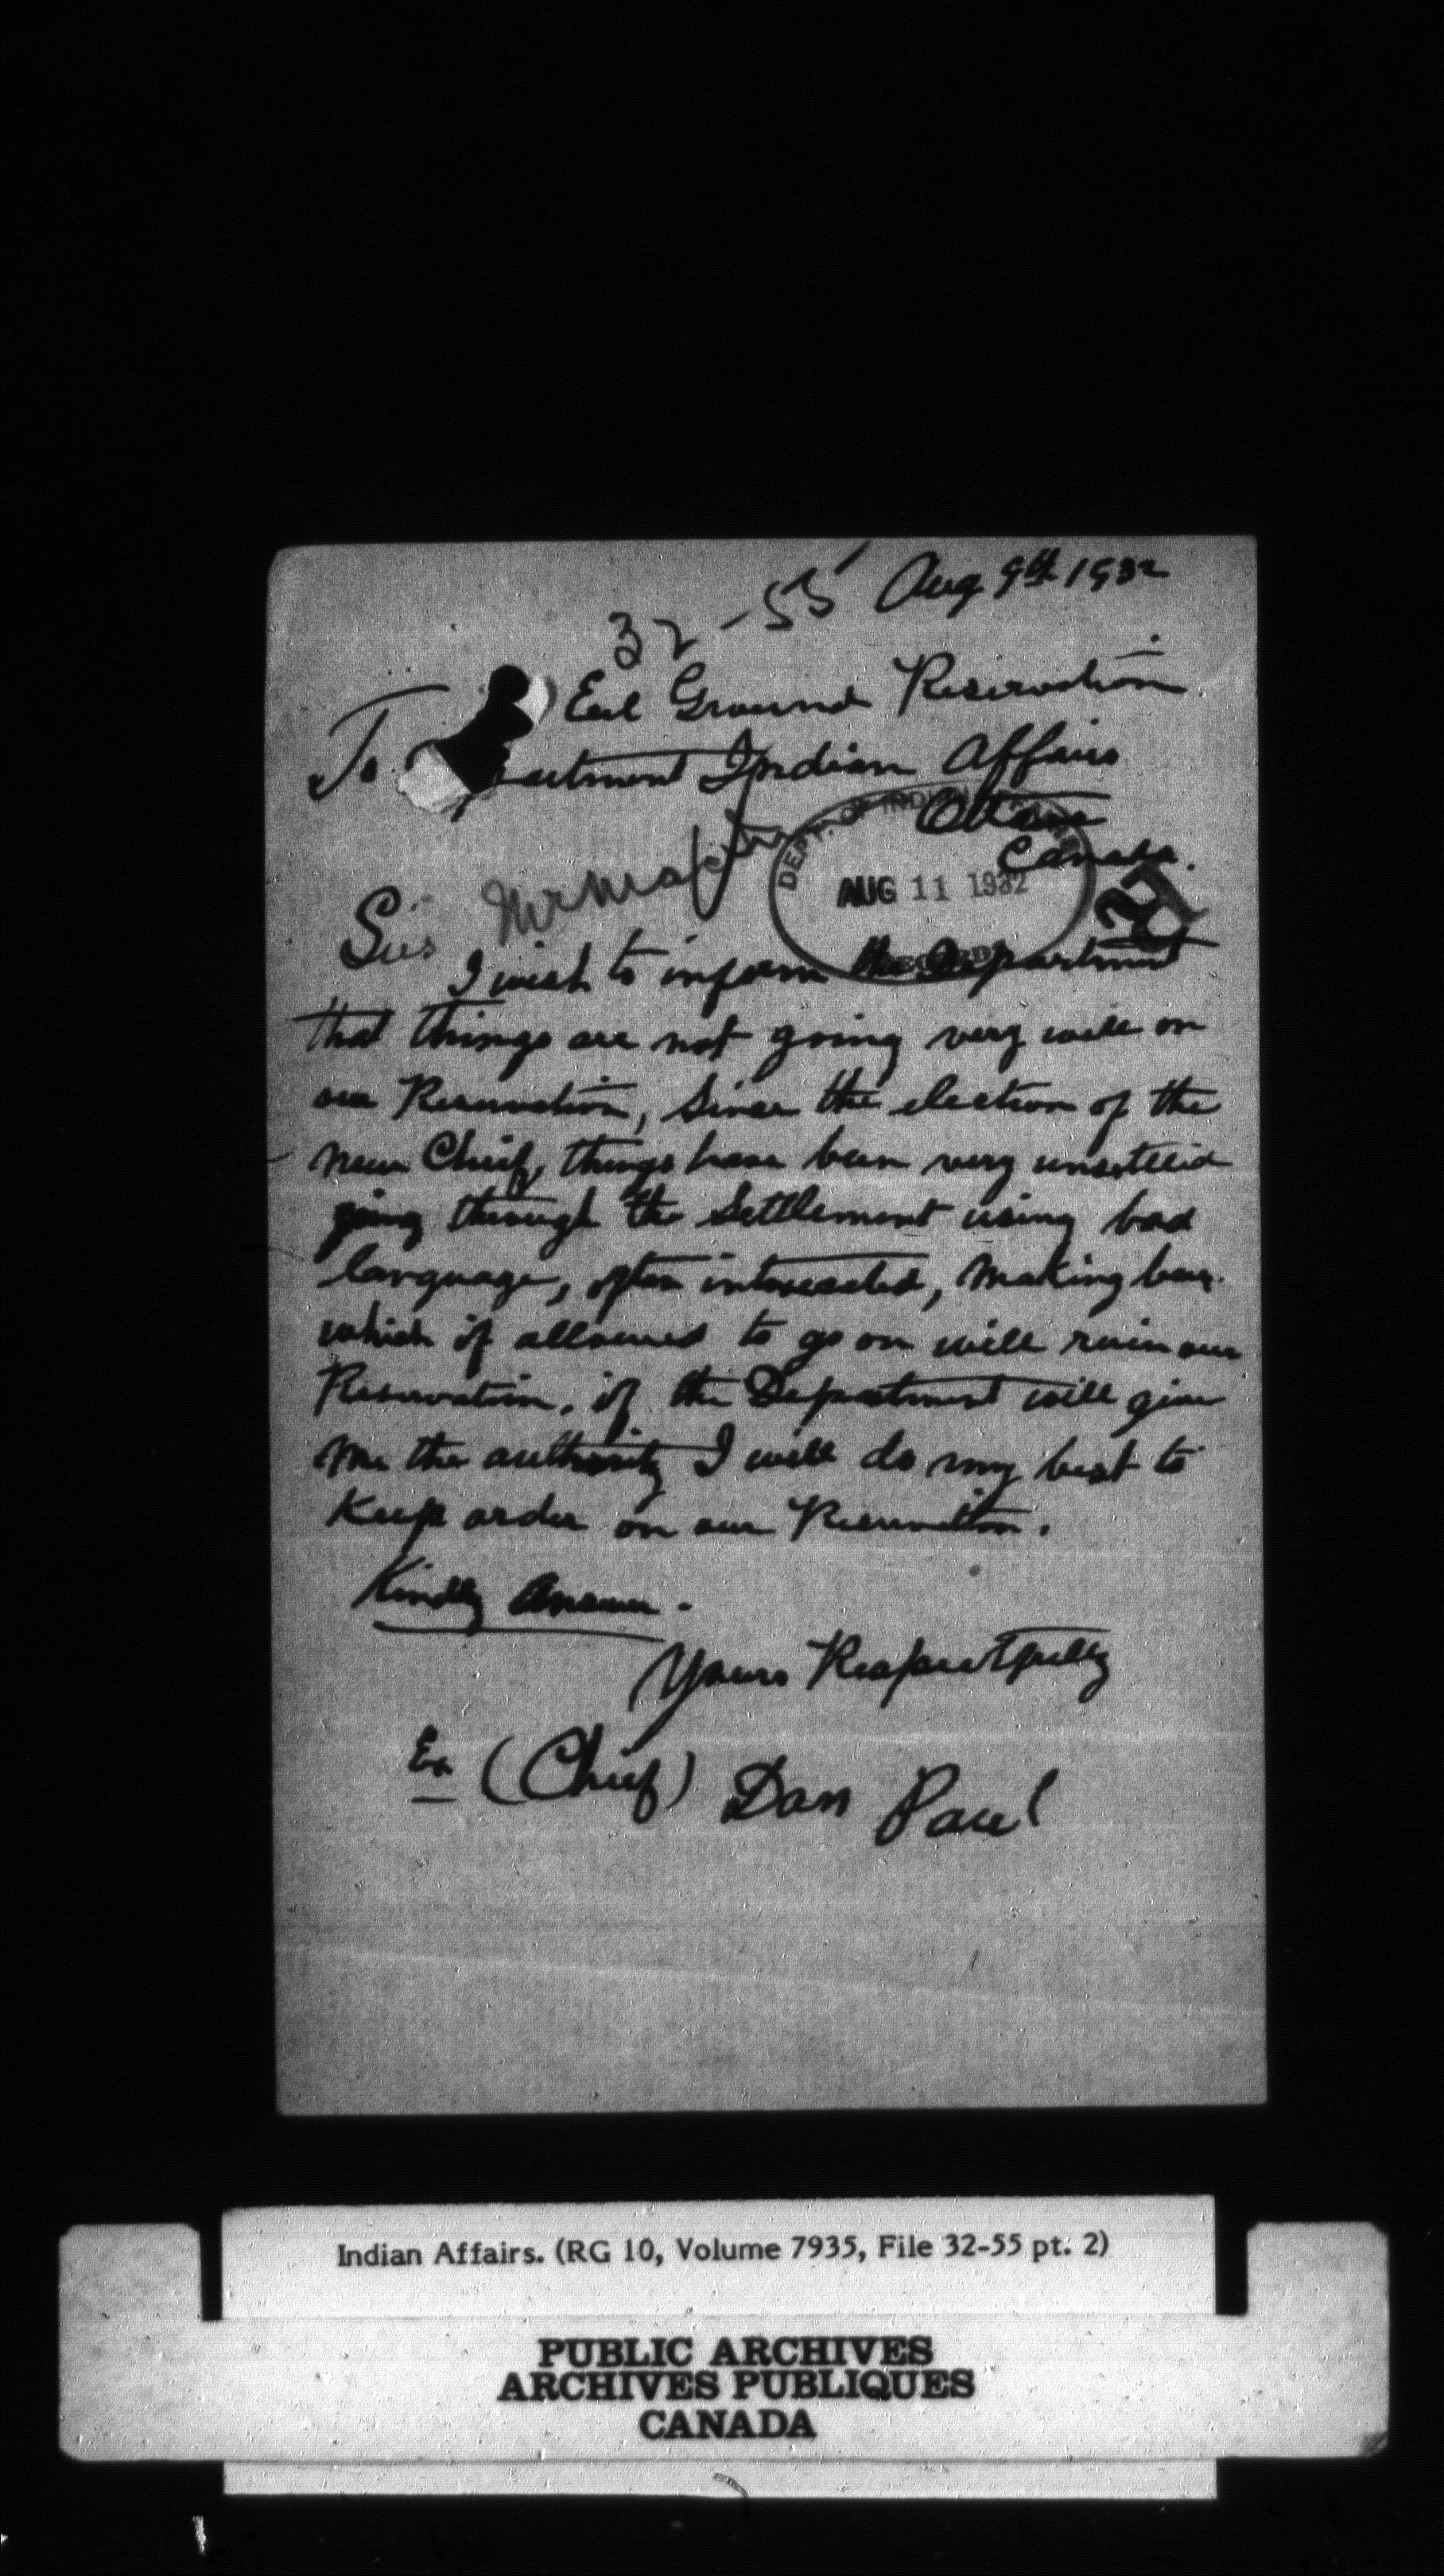 32-55 Aug 9th 1932
Eel Ground Reservation
To partment Indian Affairs
Ottawa
Canada.
DEPT. OF INDIAN AFFAIRS
AUG 11 1932
RECORDS
Sirs
I wish to inform the Department
that things are not going very well on
our Reservation, Since the election of the
new Chief, things have been very unsettled
going through the Settlement using bad
language, often intoxicated, Making beer
which if allowed to go on will ruin our
Reservation, if the Department will give
me the authority I will do my best to
Keep order on our Reservation.
Kindly Answer.
Yours Respectfully
Ex (Chief) Dan Paul
Indian Affairs. (RG 10, Volume 7935, File 32-55 pt. 2)
PUBLIC ARCHIVES
ARCHIVES PUBLIQUES
CANADA